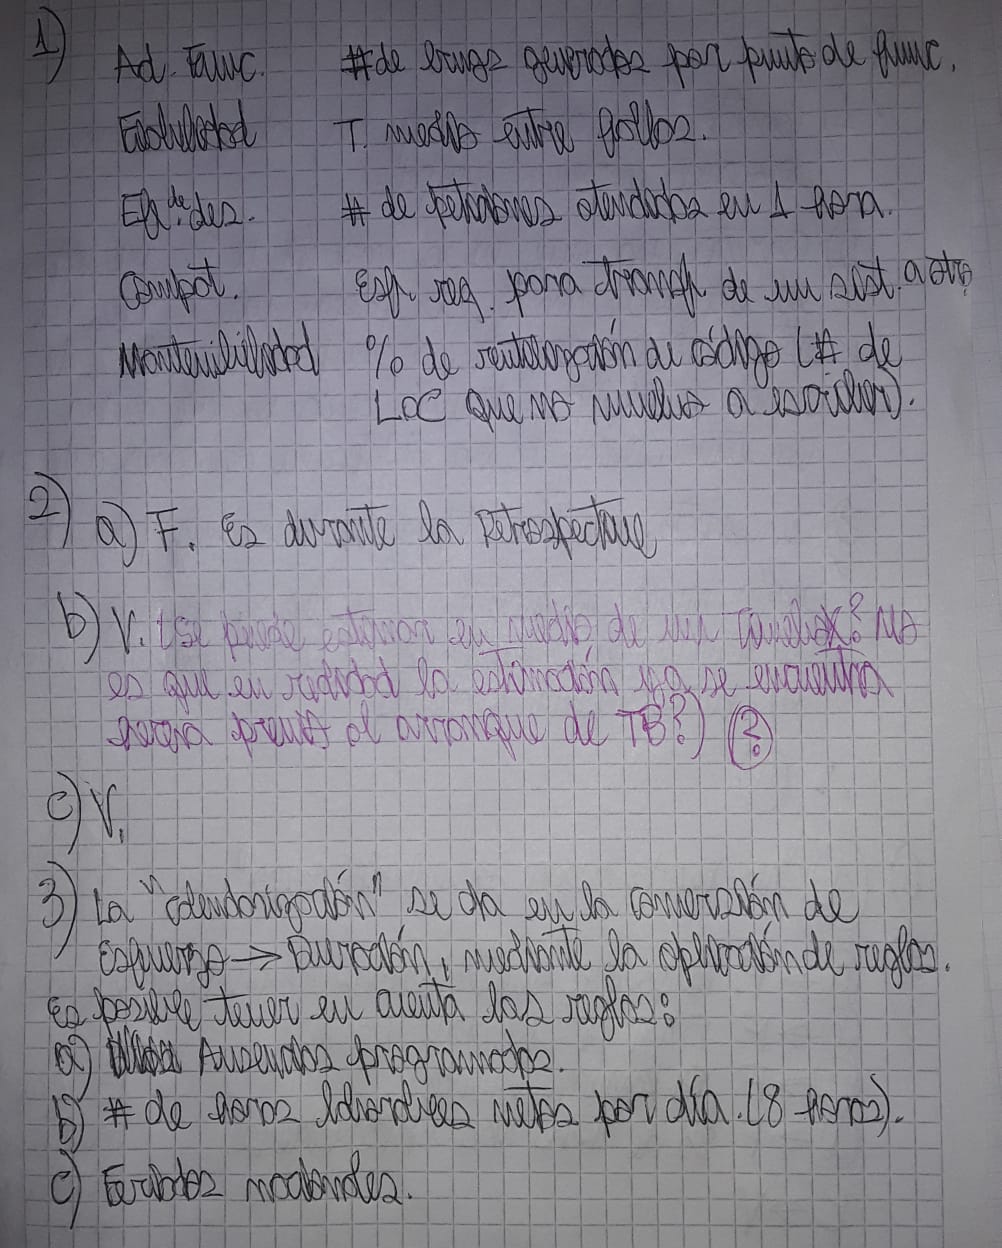 1) Ad. Func. # de bugs generados por punto de func.
Fiabilidad T. medio entre fallos.
Efi. de des. # de peticiones atendidas en 1 hora.
Compat. Esf. req. para transf. de un sist. a otro
Mantenibilidad % de reutilización de código (# de
LOC que no vuelvo a escribir).
2) a) F. Es durante la Retrospective
b) V. (Se puede estimar en medio de un TimeBox? No
es que en realidad la estimación ya se encuentra
hecha previo al arranque de TB?) (?)
c) V.
3) La "calendarización" se da en la conversión de
Esfuerzo → Duración, mediante la aplicación de reglas.
Es posible tener en cuenta las reglas:
a) Ausencias programadas.
b) # de horas laborables netas por día. (8 horas).
c) Feriados nacionales.